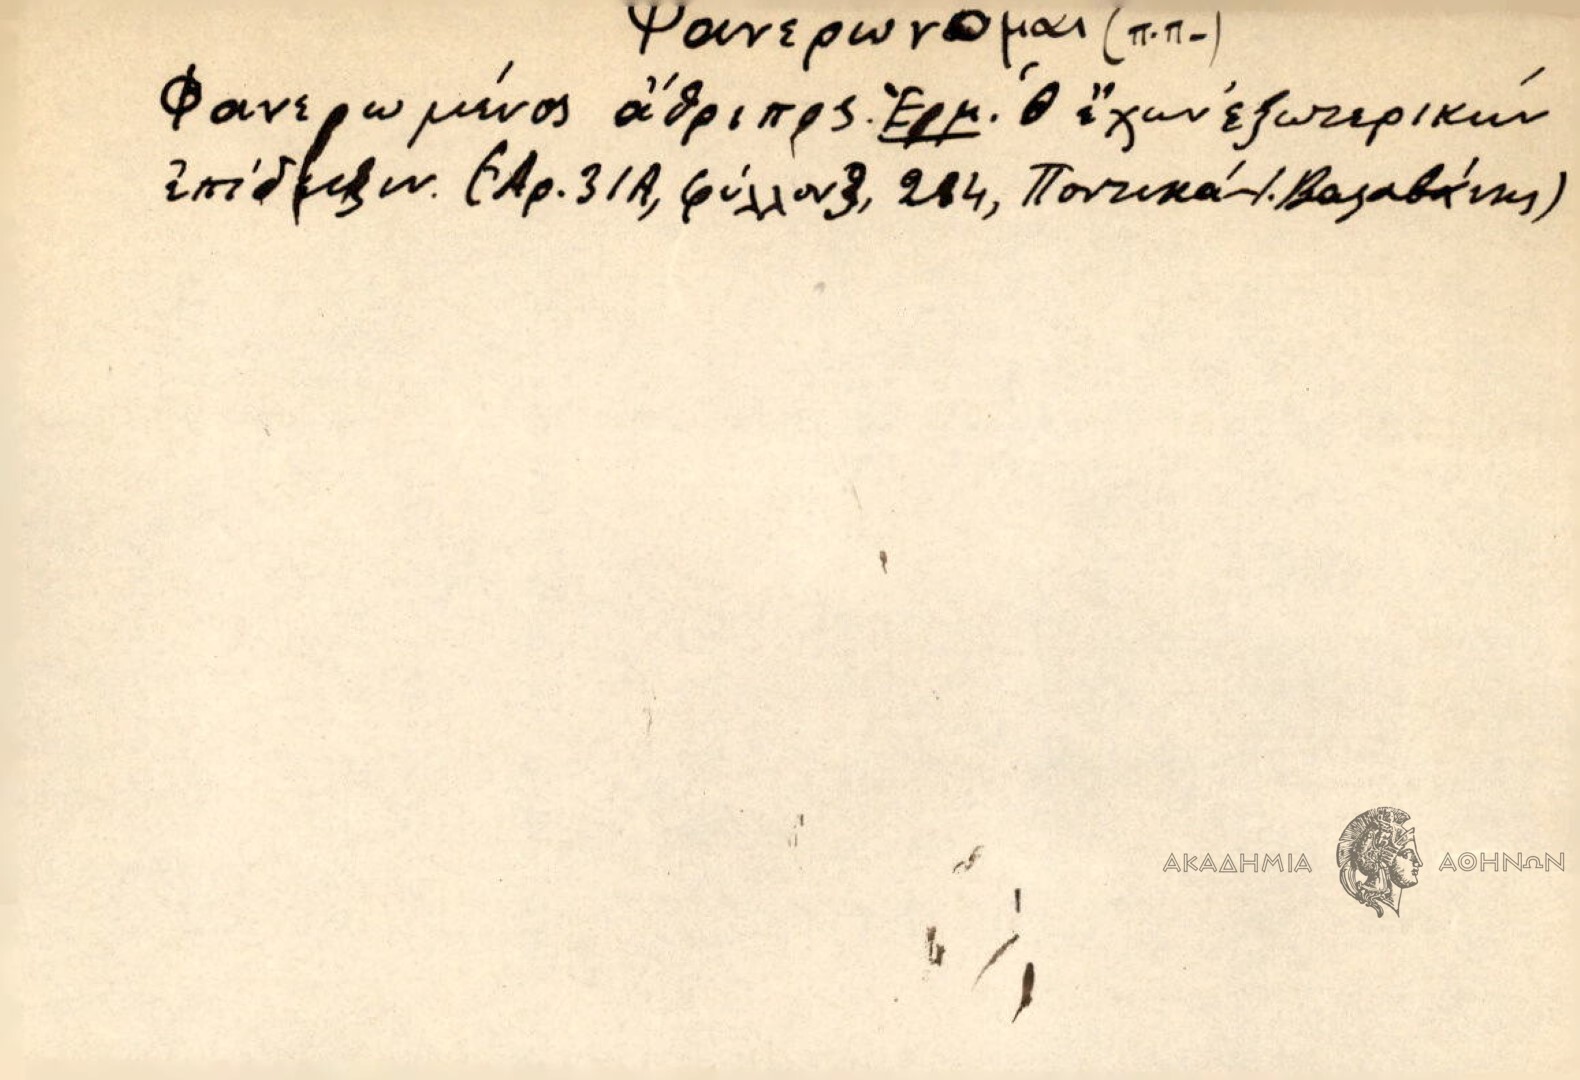 Φανερωνομαι (π.π-)
Φανερωμένος ἄθριπος. Ἑρμ. Ὁ ἔχων ἐξωτερικήν
ἐπίδειξιν. (Ἀρ. 31Α, φύλλον 3, 284, Ποντικά-Ι. Βαλαβάνης)
ΑΚΑΔΗΜΙΑ ΑΘΗΝΩΝ